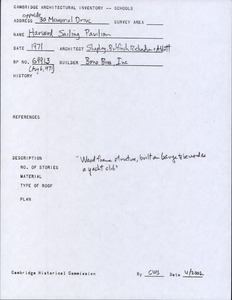 CAMBRIDGE ARCHITECTURAL INVENTORY -- SCHOOLS
opposite
ADDRESS 30 Memorial Drive SURVEY AREA
NAME Harvard Sailing Pavilion
DATE 1971 ARCHITECT Shepley, Bulfinch, Richardson & Abbott
BP NO. BUILDER Bros Inc
HISTORY
REFERENCES
DESCRIPTION "Wood frame structure, built on barge & used as
NO. OF STORIES a yacht club"
MATERIAL
TYPE OF ROOF
PLAN
Cambridge Historical Commission By Date 4/2002